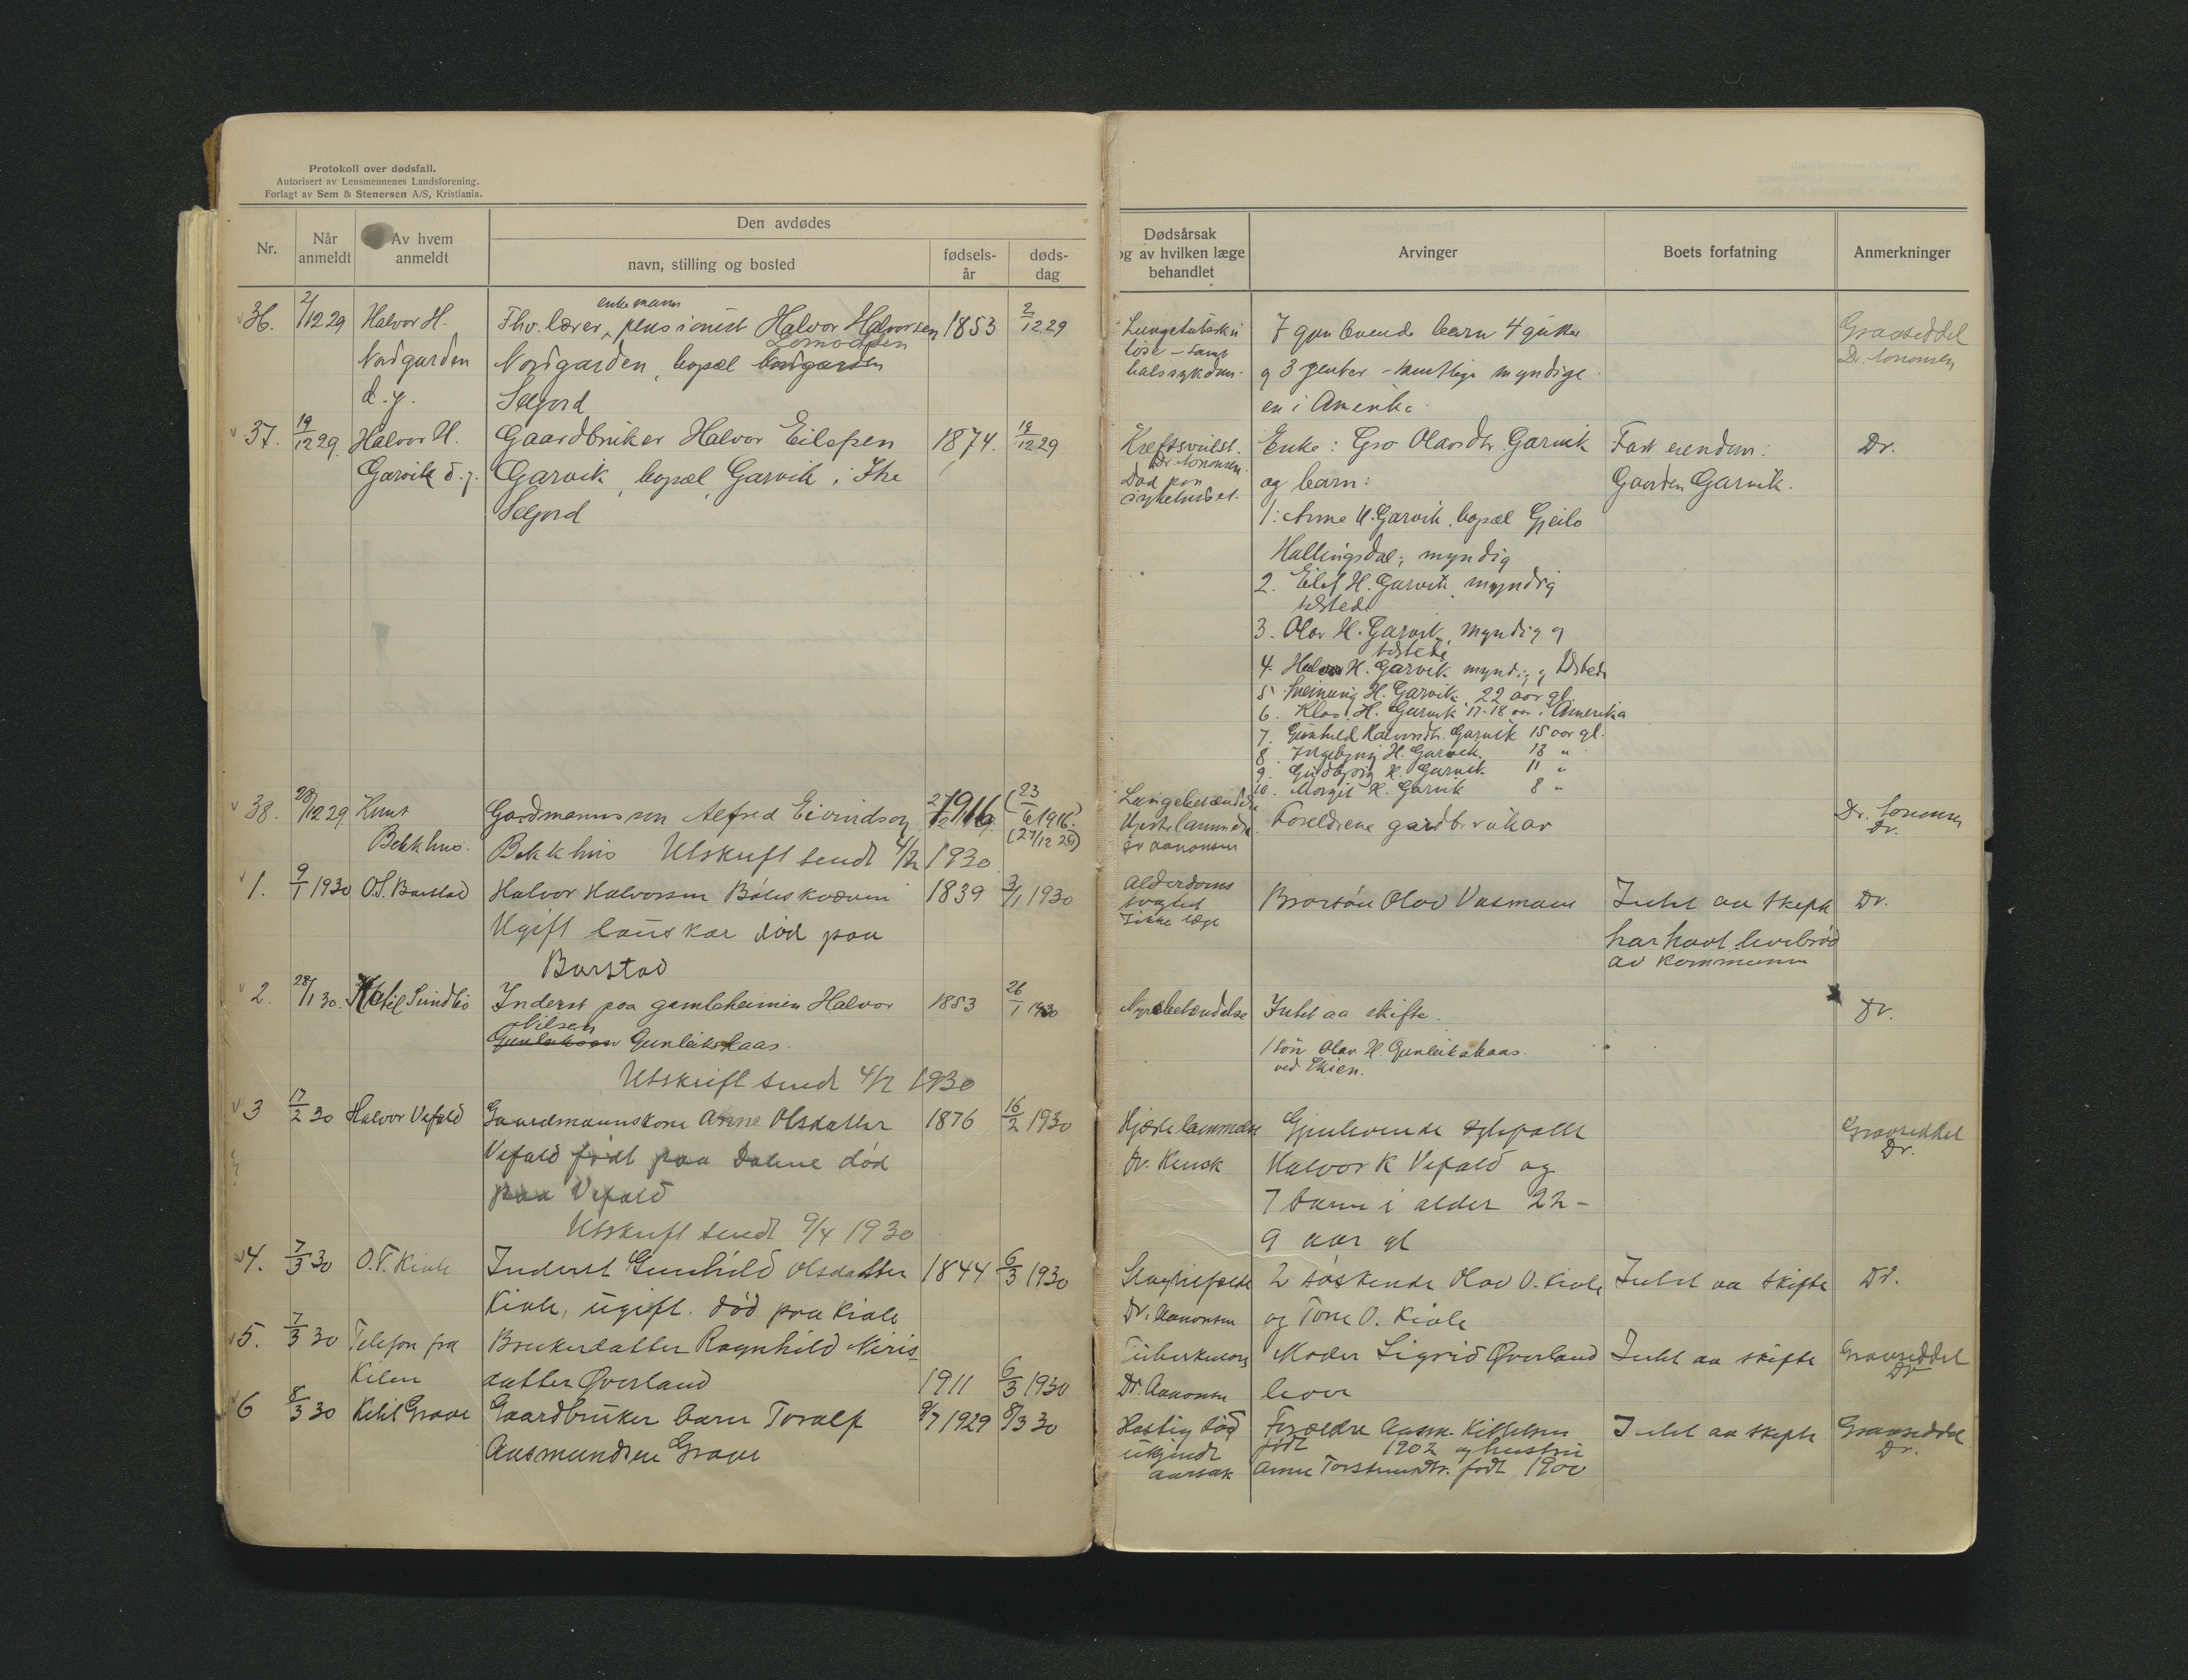 Protokoll over dødsfall.
Autorisert av Lensmennenes Landsforening.
Forlagt av Sem & Stenersen A/S, Kristiania.
Nr.
Når anmeldt
Av hvem anmeldt
Den avdødes
navn, stilling og bosted
fødsels-år
døds-dag
Dødsårsak
og av hvilken læge
behandlet
Arvinger
Boets forfatning
Anmerkninger
36. 2/12 29 Halvor H. Nordgarden d.y.
enkemann
Fhv. lærer, pensionist Halvor Halvorsen 1853 2/12 29
Nordgarden, bopæl
Seljord
Lungetuberku
løse - samt
halssykdom.
7 gjenlevende barn 4 gutter
og 3 jenter - samtlige myndige
en i Amerika.
Gravseddel
Dr.
37. 19/12 29 Halvor H. Garvik d.y.
Gaardbruker Halvor Eilefsen 1874. 19/12 29
Garvik, bopæl Garvik i
Seljord
Kreftsvulst.
Død paa
sykehuset.
Enke: Gro Olavsdtr. Garvik
og barn:
1: Anne H. Garvik, bopæl Gjeilo
Hallingdal; myndig
2. Eilef H. Garvik, myndig
tilstede
3. Olav H. Garvik, myndig og
tilstede
4. Halvor H. Garvik myndig og tilstede
5. Sveinung H. Garvik, 22 aar gl.
6. Klas H. Garvik 17-18 aar i Amerika
7. Gunhild Halvorsdtr. Garvik 15 aar gl.
8. Ingebjørg H. Garvik. 13 "
9. H. Garvik 11 "
10. Margit H. Garvik 8 "
Fast eiendom:
Gaarden Garvik.
Dr.
38. 28/12 29 Knut Bekkhus.
Gardmannsson Alfred Eivindson 1916 (23/6 1916.)
(27/12 29)
Bekkhus Utskrift sendt 4/2 1930
Lungebetændelse
Hjertelammelse
Dr Aanonsen
Foreldrene gardbrukar
Dr.
1. 9/1 1930 O.S. Barstad
Halvor Halvorsen 1839 3/1 1930
Ugift lauskar død paa
Barstad
Alderdoms
svaghet
Ikke læge
Brorsøn Olav Vasmoen
Intet aa skifte
har havt levebrød
av kommunen
Dr.
2. 28/1 30. Ketil Sundbø
Inderst paa gamleheimen Halvor 1853 26/1 1930
Nilsen
Gunleikskaas.
Utskrift sendt 4/2 1930
Nyrebetændelse
Intet aa skifte.
1 søn Olav H. Gunleikskaas.
ved Skien.
Dr.
3 17/2 30 Halvor Vefald
Gaardmannskone Anne Olsdatter 1876 16/2 1930
Vefald født paa Dalene død
paa Vefald
Utskrift sendt 9/4 1930
Hjertelammelse
Dr.
Gjenlevende egtefælle
Halvor K Vefald og
7 barn i alder 22-
9 aar gl
Gravseddel
Dr.
4. 7/3 30 O.T. Kivle
Inderst Gunhild Olsdatter 1844 6/3 1930
Kivle, ugift. død paa Kivle
Slagtilfælde
Dr. Aanonsen
2 søskende Olav O. Kivle
og Tone O. Kivle
Intet aa skifte
Dr.
5. 7/3 30 Telefon fra Kilen
Brukerdatter Ragnhild Niris-
datter Øverland 1911 6/3 1930
Tuberkulose
Dr. Aanonsen
Moder Sigrid Øverland
lever
Intet aa skifte
Gravseddel
Dr
6 8/3 30 Ketil Grave
Gaardbruker barn Toralf 9/7 1929 8/3 30
Aasmundsen Grave
Hastig død
ukjendt
aarsak
Forældre Aasm. Kittelsen
født 1902 og hustru
Anne født 1900
Intet aa skifte
Gravseddel
Dr.